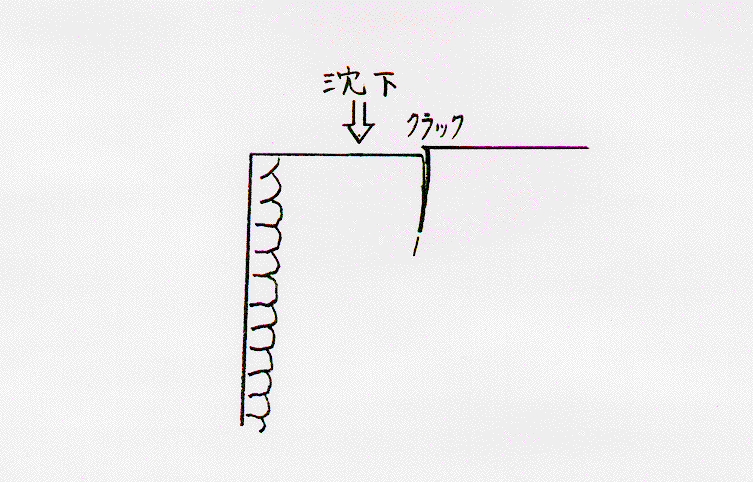 沈下
クラック